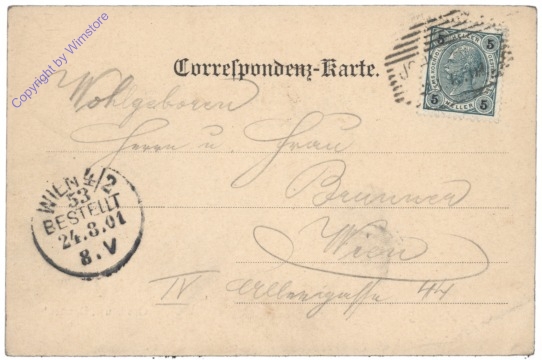 Copyright by Wimstore
Correspondenz-Karte.
5 HELLER 5
5 HELLER 5
Wohlgeboren
Herrn u. Frau
Brunner
Wien
IV. 44
WIEN 4/2
53
BESTELLT
24.8.01
8.V